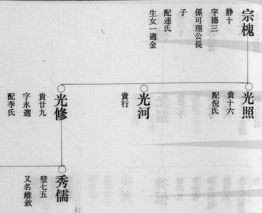 宗槐
靜十
字德三
係可理公長
子
配連氏
生女一適金
光照
貴十六
配倪氏
光河
貴行
光修
貴廿九
字永選
配李氏
秀儒
璧七五